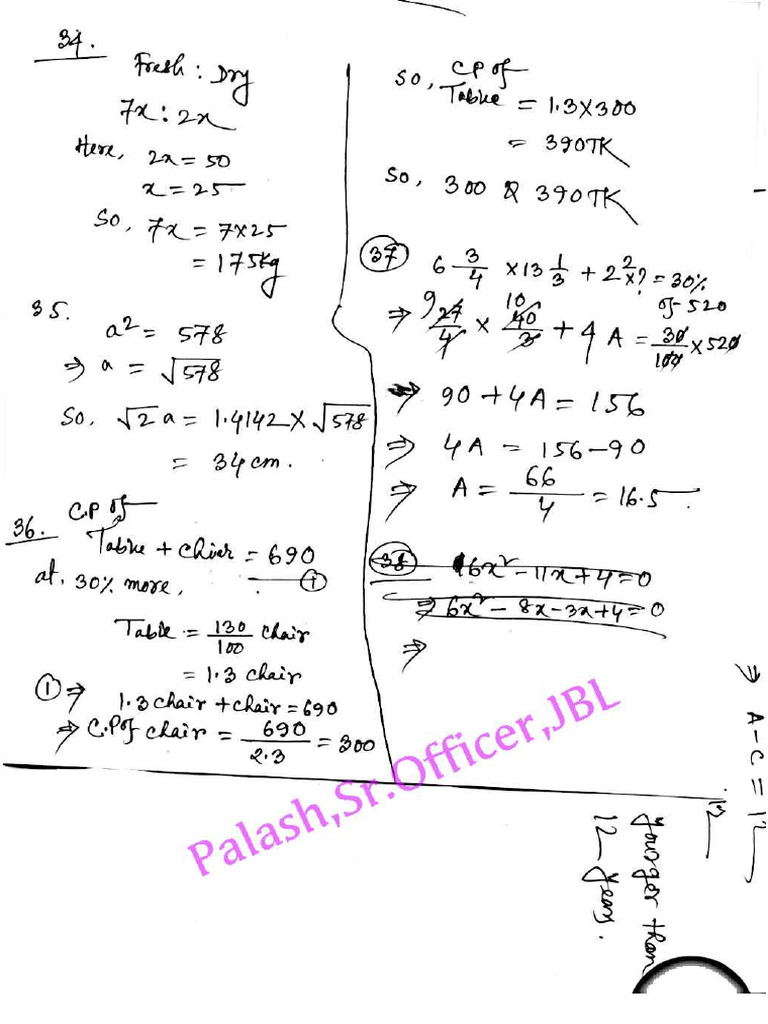 34.
Fresh : Dry
7x : 2x
Here, 2x = 50
x = 25
So, 7x = 7×25
= 175kg
35.
a² = 578
⇒ a = √578
So, √2 a = 1.4142 × √578
= 34 cm.
36. C.P of
Table + Chiar = 690
at, 30% more, ①
Table = 130/100 chair
= 1.3 chair
①⇒
1.3 chair + chair = 690
⇒ C.P of chair = 690/2.3 = 300
So, CP of
Table = 1.3×300
= 390TK
So, 300 & 390TK
37 6 3/4 ×13 1/3 + 2² ×? = 30%
of 520
⇒ 9 27/4 × 10 40/3 + 4A = 30/100 × 520
⇒ 90 + 4A = 156
⇒ 4A = 156-90
⇒ A = 66/4 = 16.5
38 6x² - 11x + 4 = 0
⇒ 6x² - 8x - 3x + 4 = 0
⇒
Palash,Sr.Officer,JBL
⇒ A-C = 12
12
younger than
12 years.